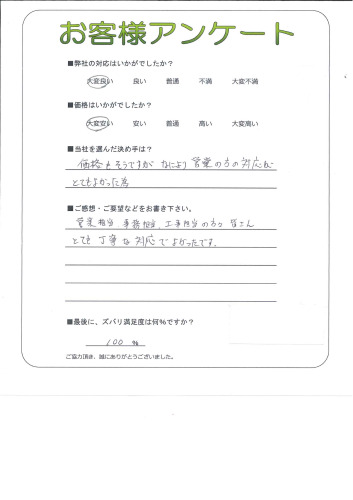 お客様アンケート
■弊社の対応はいかがでしたか？
大変良い 良い 普通 不満 大変不満
■価格はいかがでしたか？
大変安い 安い 普通 高い 大変高い
■当社を選んだ決め手は？
価格もそうですが なにより 営業の方の対応が
とてもよかった為
■ご感想・ご要望などをお書き下さい。
営業担当 事務担当 工事担当の方々 皆さん
とても 丁寧な対応で よかったです。
■最後に、ズバリ満足度は何％ですか？
100 ％
ご協力頂き、誠にありがとうございました。